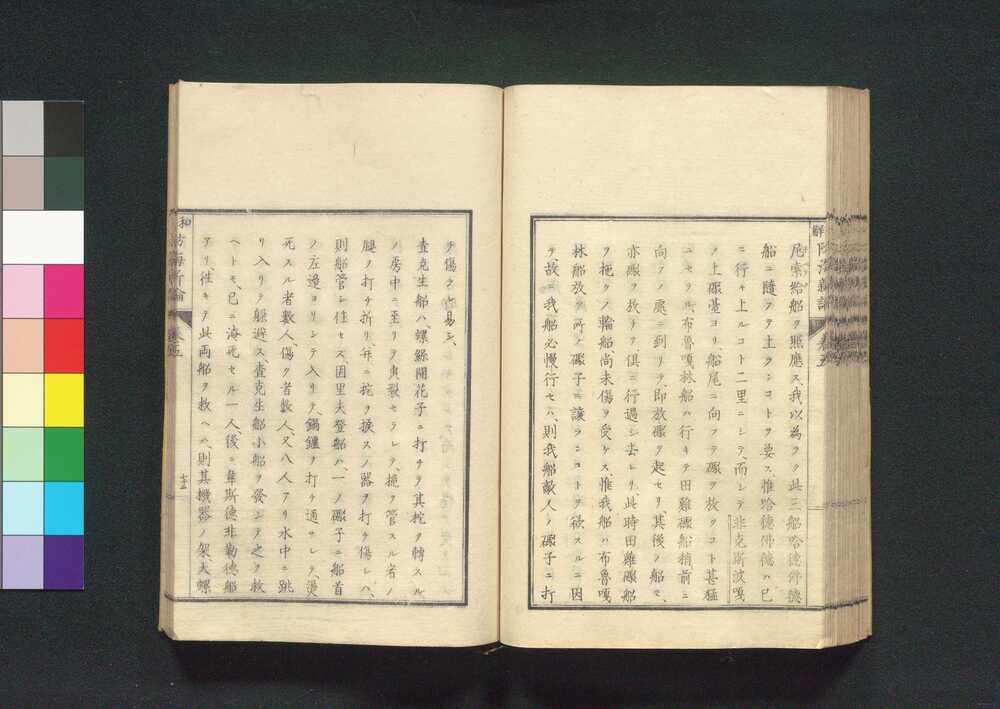 尾索給船ヲ照應ス、我以為ラク此三船哈德佛德
船ニ隨フテ上ランコトヲ要ス、惟哈德佛德ハ已
ニ行キ上ルコト二里ニシテ、而シテ非克斯波嘎
ノ上礮臺ヨリ、船尾ニ向フテ礮ヲ放ツコト甚猛
ニセリ、布魯嘎林船ハ行キテ田雞礮船稍前ニ
向フノ處ニ到リテ、即放礮ヲ起セリ、其後ノ船モ、
亦礮ヲ放チテ俱ニ行過シ去レリ、此時田雞礮船
ヲ拖クノ輪船尚未傷ヲ受ケス、惟我船ハ布魯嘎
林船放ツ所ノ礮子ニ讓ランコトヲ欲スルニ因
テ、故ニ我船必慢行セハ、則我船敵人ノ礮子ニ打
チ傷ラレ易シ、
查克生船ハ、螺絲開花子ニ打チテ其柁ヲ轉スル
ノ房中ニ至リテ爆裂セラレテ、柁ヲ管スル者ノ
腿ヲ打チ折リ、幷ニ柁ヲ換スノ器ヲ打チ傷レハ、
則船管シ住セス、因里夫登船ハ、一ノ礮子ニ船首
ノ左邊ヨリシテ入リテ、鍋爐ヲ打チ通サレテ、燙
死スル者數人、傷ク者數人、又八人アリ水中ニ跳
リ入リテ躲避ス、查克生船小船ヲ發シテ之ヲ救
ヘトモ、已ニ淹死セル一人後ニ韋斯德非勒德船
アリ、徃キテ此兩船ヲ救ヘハ、則其機器ノ架、大螺